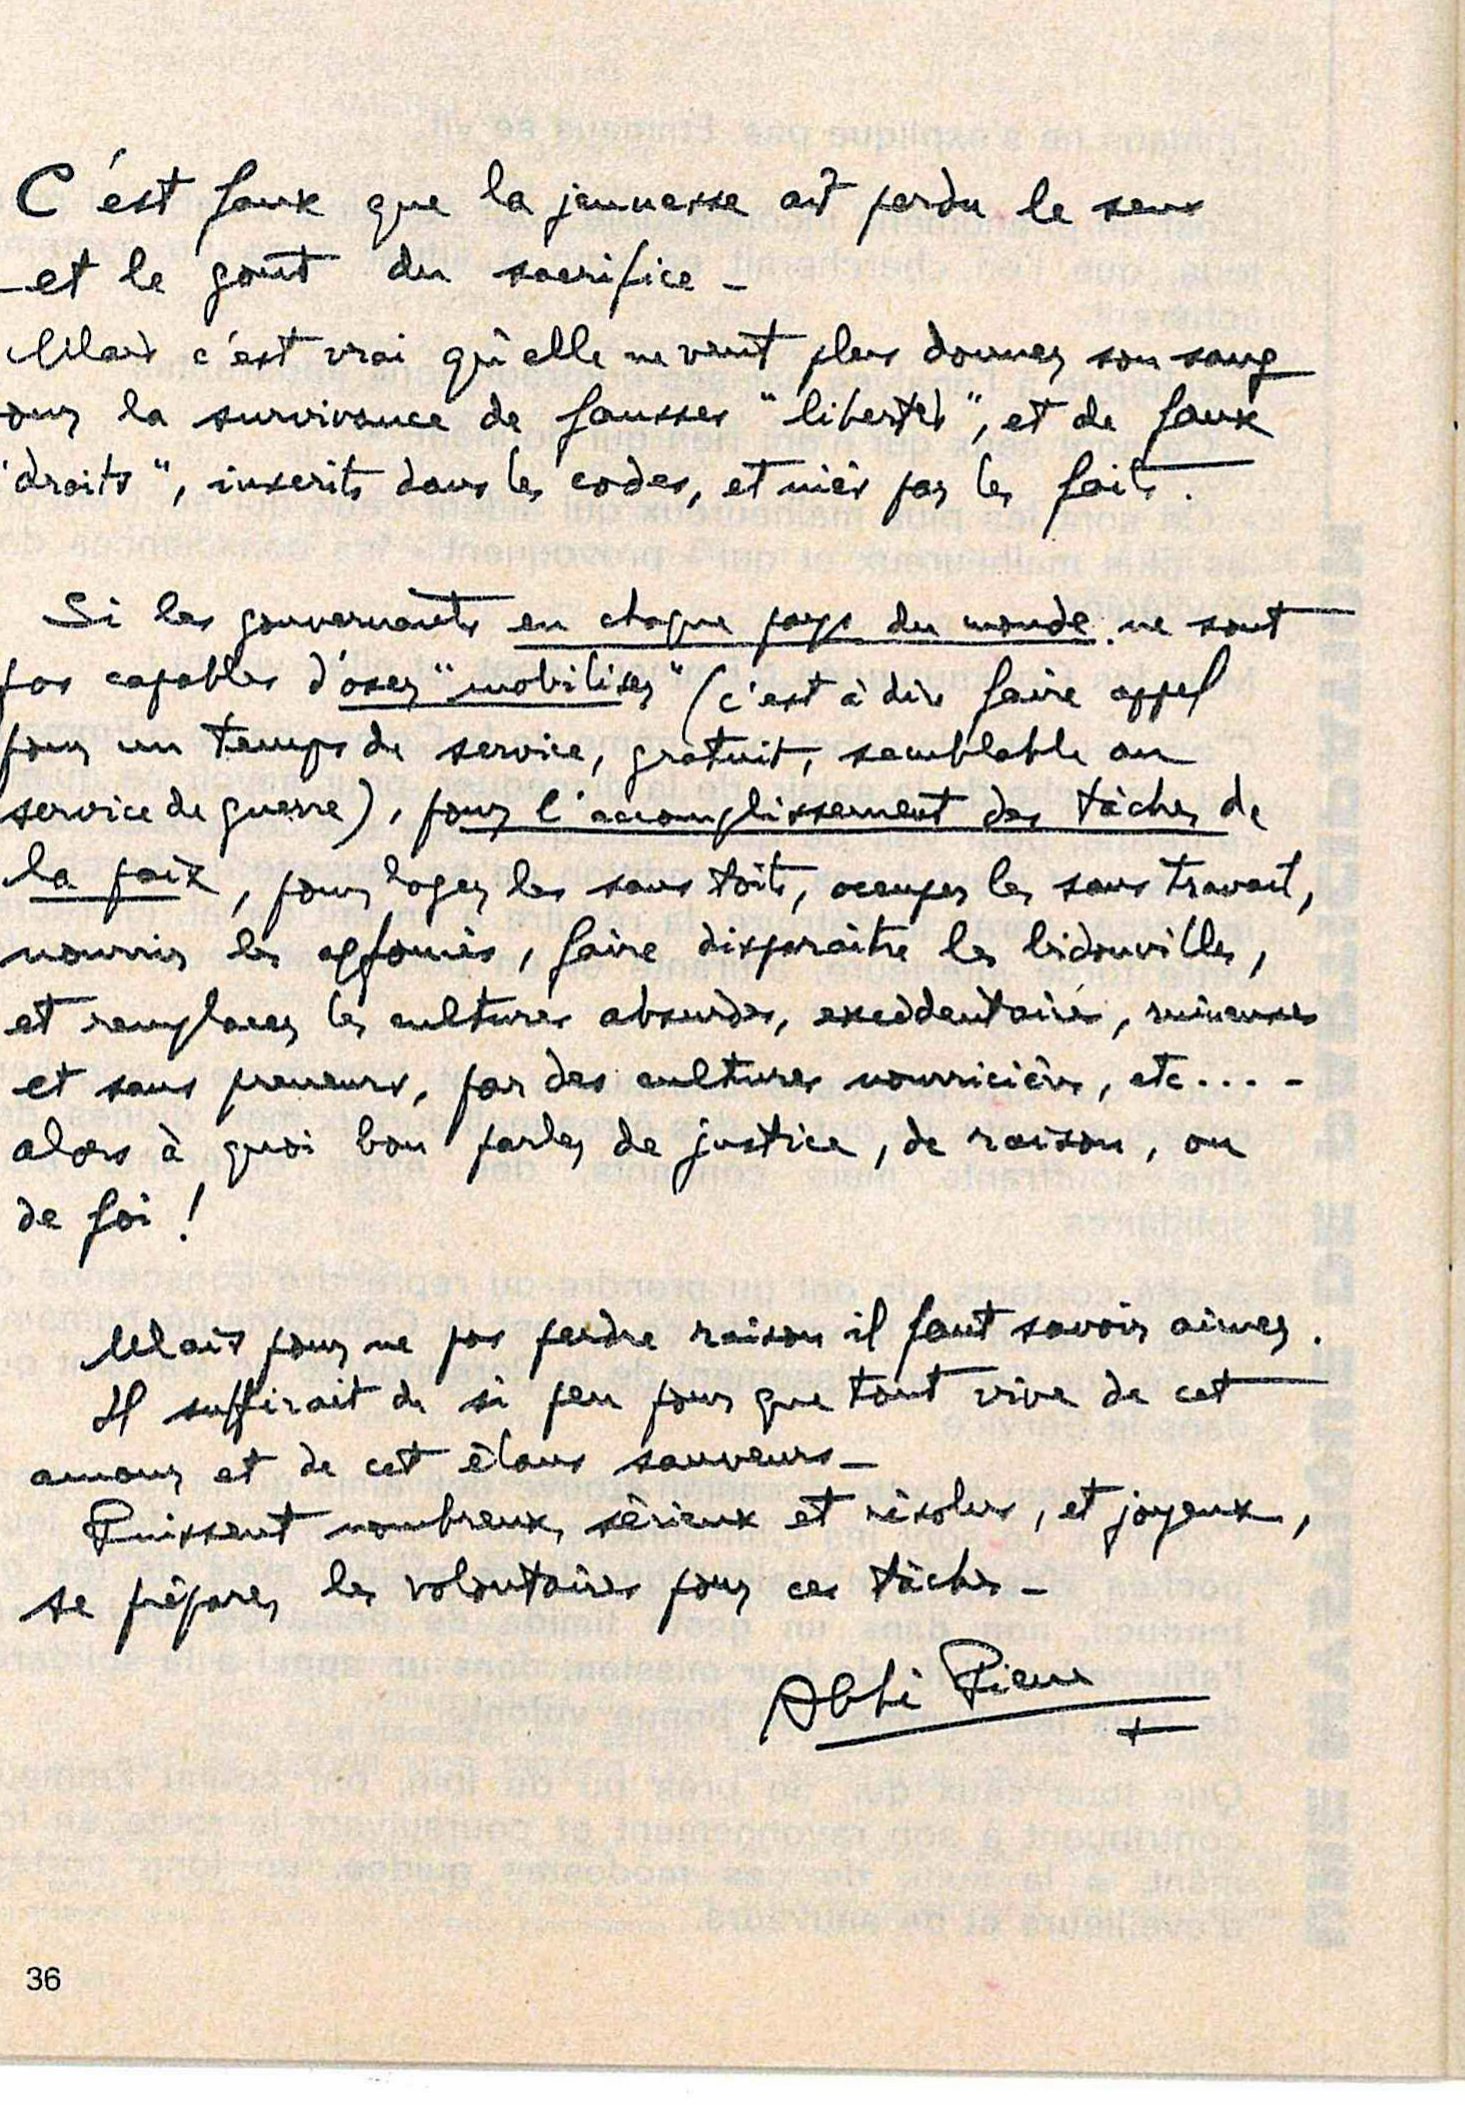 C'est faux que la jeunesse ait perdu le sens
et le goût du sacrifice -
Mais c'est vrai qu'elle ne veut plus donner son sang
our la survivance de fausses "libertés", et de faux
"droits", inscrits dans les codes, et niés par les faits.
Si les gouvernants en chaque pays du monde ne sont
pas capables d'oser "mobiliser" (c'est à dire faire appel
pour un temps de service, gratuit, semblable au
service de guerre), pour l'accomplissement des tâches de
la paix, pour loger les sans toits, occuper les sans travail,
nourrir les affamés, faire disparaître les bidonvilles,
et remplacer les cultures absurdes, excédentaires, ruineuses
et sans preneurs, par des cultures nourricières, etc... -
alors à quoi bon parler de justice, de raison, ou
de foi !
Mais pour ne pas perdre raison il faut savoir aimer.
Il suffirait de si peu pour que tout vive de cet
amour et de cet élans sauveurs -
Puissent nombreux, sérieux et résolus, et joyeux,
se préparer les volontaires pour ces tâches -
Abbé Pierre
36